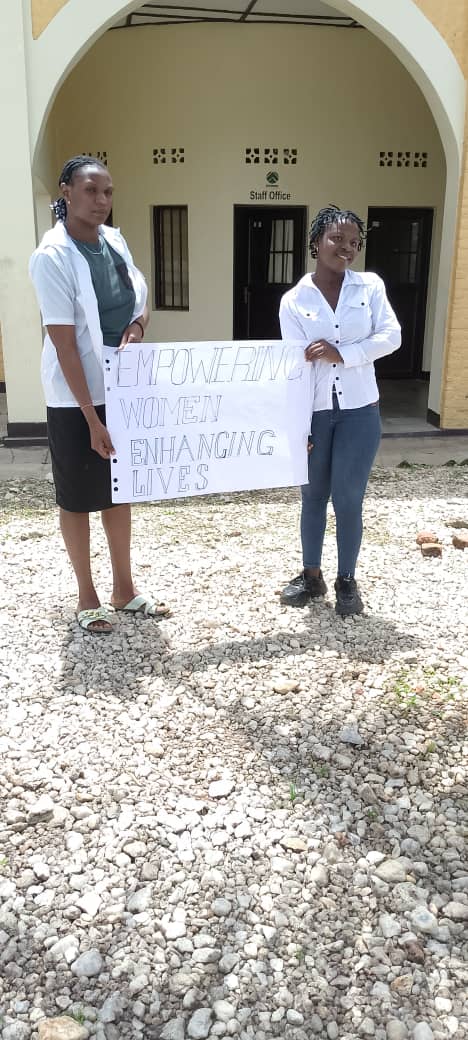 Staff Office
EMPOWERING
WOMEN
ENHANCING
LIVES